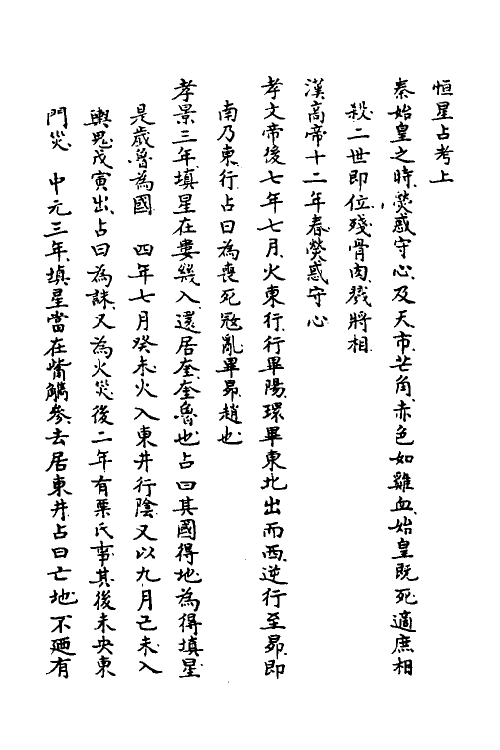 恒星占考上
秦始皇之時熒惑守心及天市芒角赤色如雞血始皇既死適庶相
殺二世即位殘骨肉戮將相
漢高帝十二年春熒惑守心
孝文帝後七年七月火東行行畢陽環畢東北出而西逆行至昴即
南乃東行占曰為喪死冦亂畢昴趙也
孝景三年填星在婁幾入還居奎奎魯也占曰其國得地為得填星
是歲魯為國　四年七月癸未火入東井行陰又以九月己未入
輿鬼戊寅出占曰為誅又為火災後二年有栗氏事其後未央東
門災　中元三年填星當在觜觿參去居東井占曰亡地不廼有